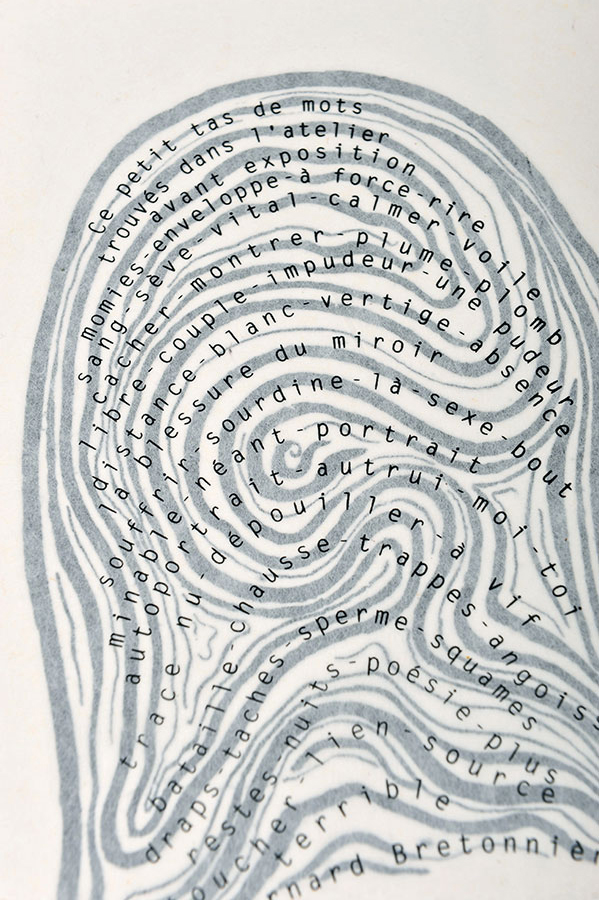 Ce petit tas de mots
trouvés dans l'atelier
avant exposition
momies-enveloppe-à force-rire
sang-sève-vital-calmer-voile
cacher-montrer-plume-plomb
libre-couple-impudeur-une pudeur
distance-blanc-vertige-absence
la blessure du miroir
souffrir-sourdine-là-sexe-bout
minable-néant-portrait
autoportrait-autrui-moi-toi
trace nu-dépouiller-à vif
bataille-chausse-trappes-angoiss
draps-taches-sperme-squames
restes-nuits-poésie-plus
oucher-lien-source
terrible
rnard Bretonnièr